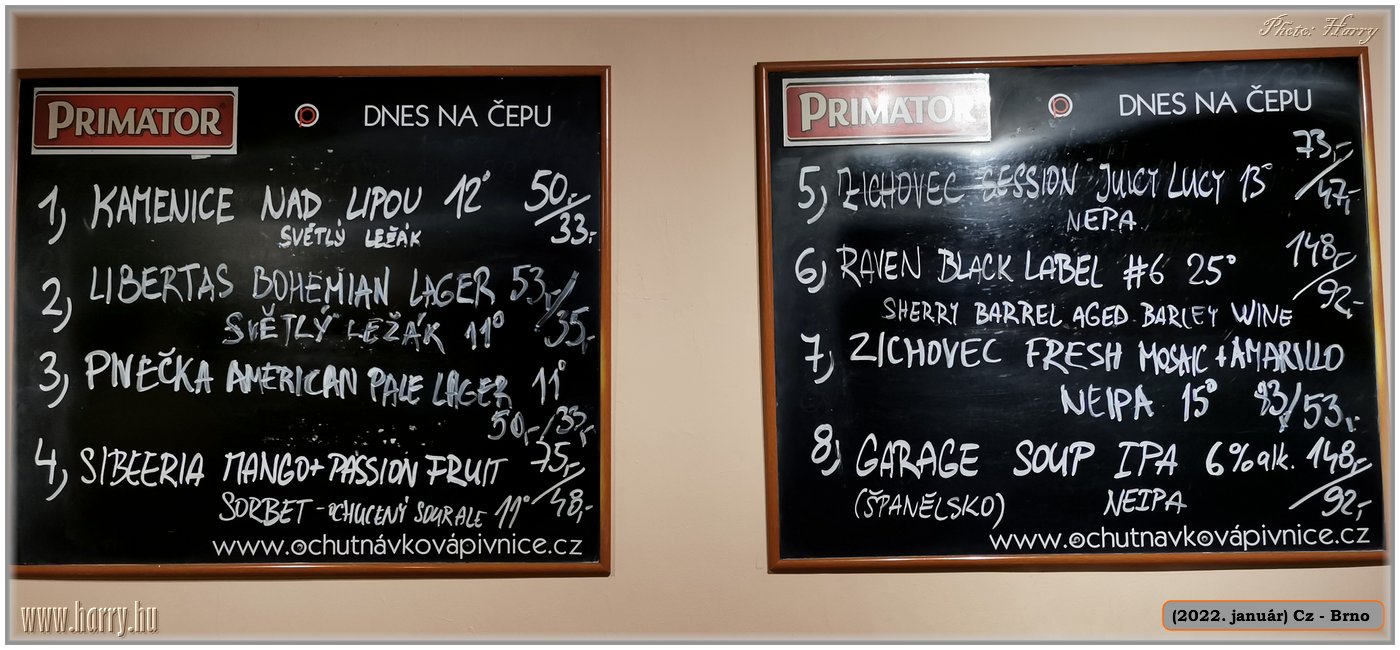 Photo: Harry
PRIMÁTOR
DNES NA ČEPU
1, KAMENICE NAD LIPOU 12° 50,-/33,-
SVĚTLÝ LEŽÁK
2, LIBERTAS BOHEMIAN LAGER 53,-/35,-
SVĚTLÝ LEŽÁK 11°
3, PIVEČKA AMERICAN PALE LAGER 11°
50,-/33,-
4, SIBEERIA MANGO + PASSION FRUIT 75,-/48,-
SORBET - OCHUCENÝ SOUR ALE 11°
www.ochutnávkovápivnice.cz
PRIMÁTOR
DNES NA ČEPU
5, ZICHOVEC SESSION JUICY LUCY 13° 73,-/47,-
NEPA
6, RAVEN BLACK LABEL #6 25° 148,-/92,-
SHERRY BARREL AGED BARLEY WINE
7, ZICHOVEC FRESH MOSAIC + AMARILLO
NEIPA 15° 83/53,-
8, GARAGE SOUP IPA 6% alk. 148,-/92,-
(ŠPANĚLSKO) NEIPA
www.ochutnávkovápivnice.cz
www.harry.hu
(2022. január) Cz - Brno